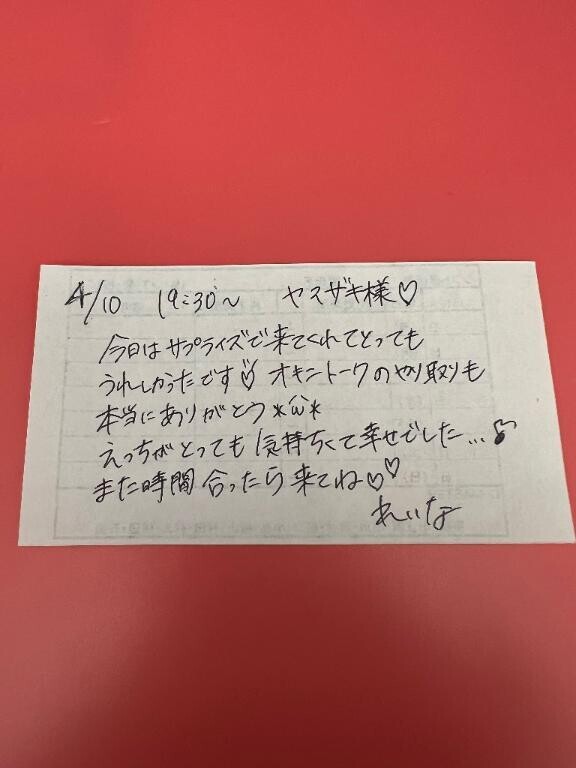 4/10 19:30～ ヤスザキ様♡
今日はサプライズで来てくれてとっても
うれしかったです♡ オキニトークのやり取りも
本当にありがとう*ω*
えっちがとっても気持ちくて幸せでした...♪
また時間合ったら来てね♡♡
れいな